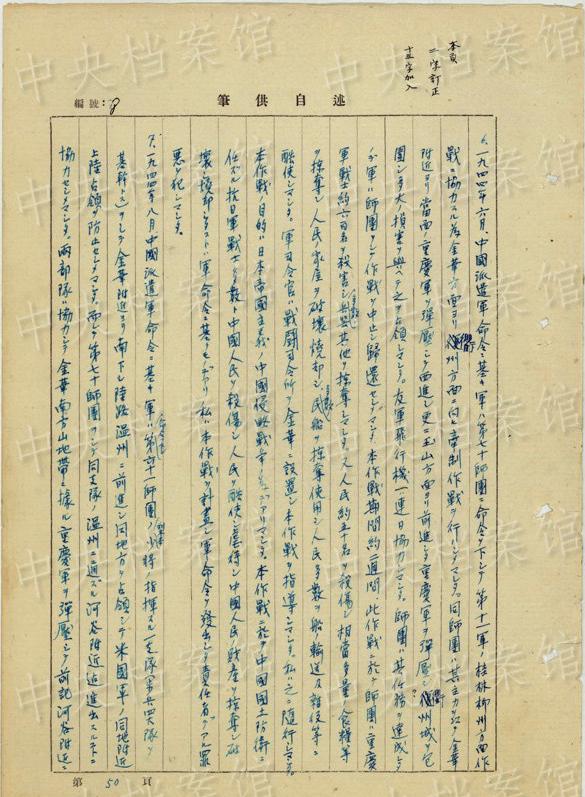 本頁
二字訂正
十五字加入
編號:8
筆供自述
6、一九四四年六月、中國派遣軍命令ニ基キ軍ハ第七十師團ニ命令ヲ下シテ第十一軍ノ桂林柳州方面作
戰ニ協力スル為金華方面ヨリ衢州方面ニ向ヒ牽制作戰ヲ行ハシメマシタ。同師團ハ其主力ヲ以テ金華
附近ヨリ當面ノ重慶軍ヲ彈壓シテ西進シ更ニ玉山方面ヨリ前進シタ重慶軍ヲ彈壓シ衢州城ヲ包
圍シ多大ノ損害ヲ與ヘテ之ヲ占領シマシタ。友軍飛行機一連日協力シマシタ。師團ハ其任務ヲ達成シタ
ノデ軍ハ師團ヲシテ作戰ヲ中止シ歸還セシメマシタ。本作戰期間約二週間、此作戰ニ於テ師團ハ重慶
軍戰士約六百名ヲ殺害シ兵器其他ヲ掠奪シマシタ。又人民約五十名ヲ殺傷シ相當多量ノ食糧等
ヲ掠奪シ人民ノ家屋ヲ破壞燒却シ、民船ヲ掠奪使用シ人民多數ヲ船輸送及雜役等ニ
酷使シマシタ。軍司令官ハ戰鬪司令所ヲ金華ニ設置シ本作戰ヲ指導シマシタ。私ハ之ニ隨行シマシタ。
本作戰ノ目的ハ日本帝國主義ノ中國侵略戰争ノ為デアリマシタ。本作戰ニ於テ中國國土防衛ニ
任ズル抗日軍戰士多數ト中國人民ヲ殺傷シ人民ヲ酷使シ虐待シ中國人民ノ財產ヲ掠奪シ破
壞シ燒却シタコトハ軍ノ命令ニ基クモノデアリ私ハ本作戰ヲ計畫シ軍命令ヲ發出シタ責任者デアル罪
惡ヲ犯シマシタ。
7、一九四四年八月中國派遣軍命令ニ基キ軍ハ第六十一師團ノ少將ノ指揮スル一支隊ヲ
基幹トシテ金華附近ヨリ南下シ陸路溫州ニ前進シ同地方ヲ占領シテ米國軍ノ同地附近
上陸占領ヲ防止セシメマシタ。而シテ第七十師團ヲシテ同支隊ノ溫州ニ通ズル河谷附近迄進出スルコトニ
協力セシメマシタ。兩部隊ハ協力シテ金華南方山地帶ニ據ル重慶軍ヲ彈壓シテ前記河谷附近ニ
第50頁